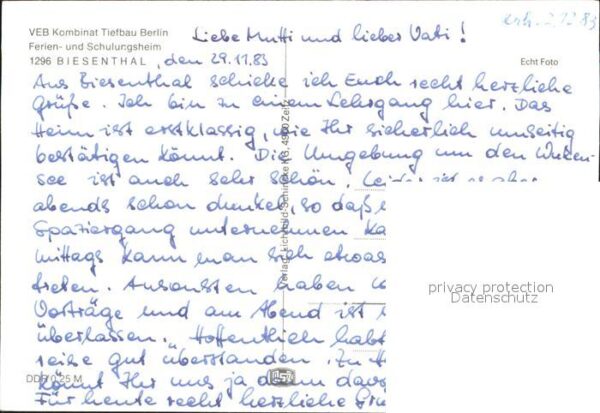 erh. 2.12.83
VEB Kombinat Tiefbau Berlin
Ferien- und Schulungsheim
1296 BIESENTHAL, den 29.11.83
Liebe Mutti und lieber Vati!
Echt Foto
Aus Biesenthal schicke ich Euch recht herzliche
Grüße. Ich bin zu einem Lehrgang hier. Das
Heim ist erstklassig, wie Ihr sicherlich umseitig
bestätigen könnt. Die Umgebung um den Wukensee
see ist auch sehr schön. Leider ist es aber
abends schon dunkel, so daß
Spaziergang unternehmen
mittags kann man sich etwas
treten. Ansonsten haben
Vorträge und am Abend ist
überlassen. Hoffentlich habt
reise gut überstanden. Zu
könnt Ihr uns ja dann
Für heute recht herzliche
Verlag Lichtbild-Schincke KG, 4900 Zeitz
privacy protection
Datenschutz
DDR 0,25 M